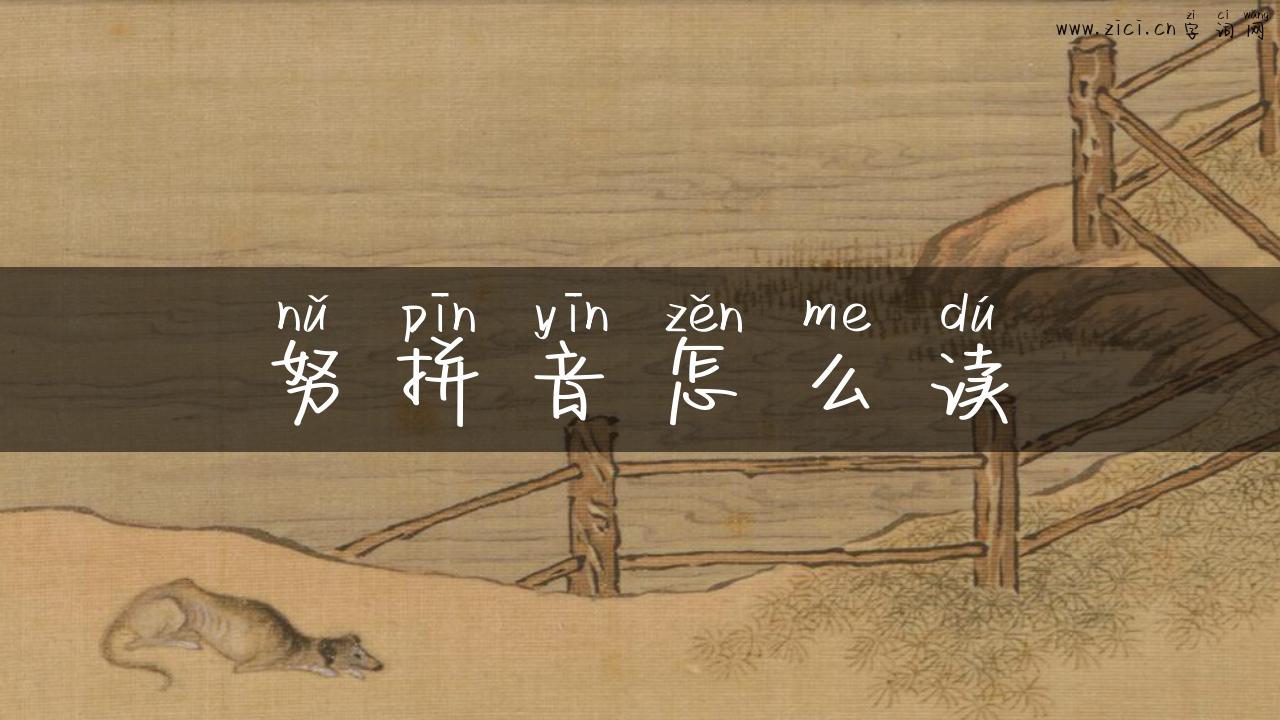 zi ci wang
www.zici.cn 字词网
nǔ pīn yīn zěn me dú
努拼音怎么读